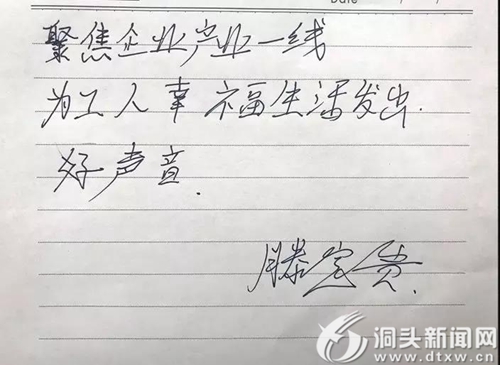 Date / /
聚焦企业产业一线
为工人幸福生活发出
好声音.
滕宝贵.
洞头新闻网
www.dtxw.cn